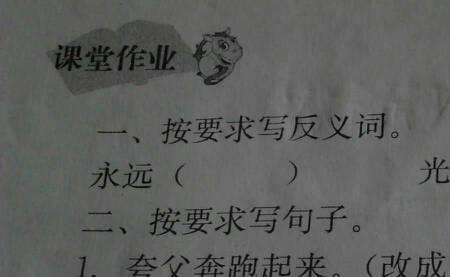 课堂作业
一、按要求写反义词。
永远（ ） 光
二、按要求写句子。
1. 夸父奔跑起来。（改成